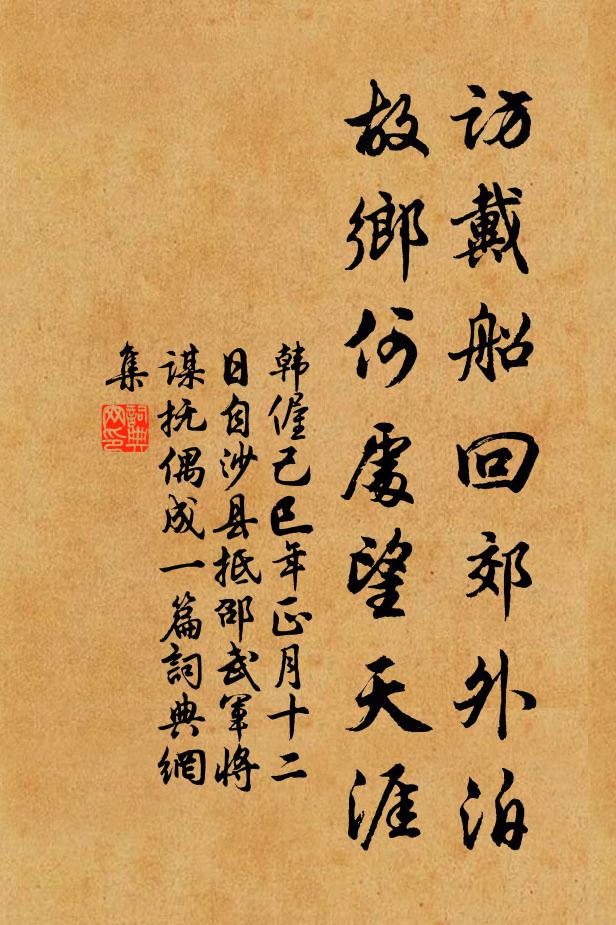 訪戴船回郊外泊
故鄉何處望天涯
韩偓己巳年正月十二
日自沙县抵邵武軍将
谋抚偶成一篇詞典網
集
詞典網印